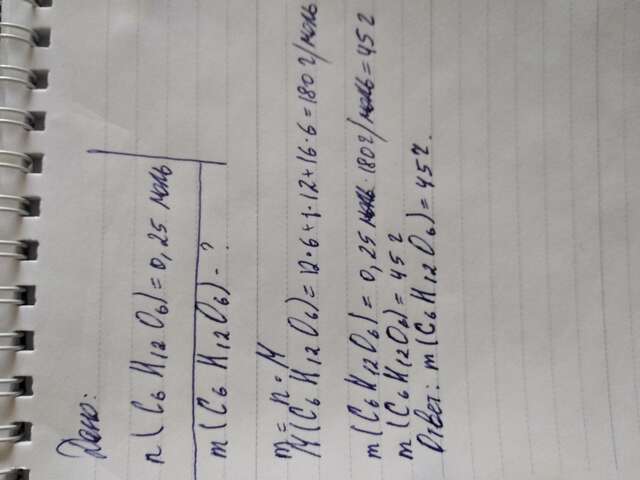 Дано:
n(C₆H₁₂O₆)=0,25 моль
m(C₆H₁₂O₆)-?
m=n·M
M(C₆H₁₂O₆)=12·6+1·12+16·6=180г/моль
m(C₆H₁₂O₆)=0,25 моль·180г/моль=45г
m(C₆H₁₂O₆)=45г
Ответ: m(C₆H₁₂O₆)=45г.